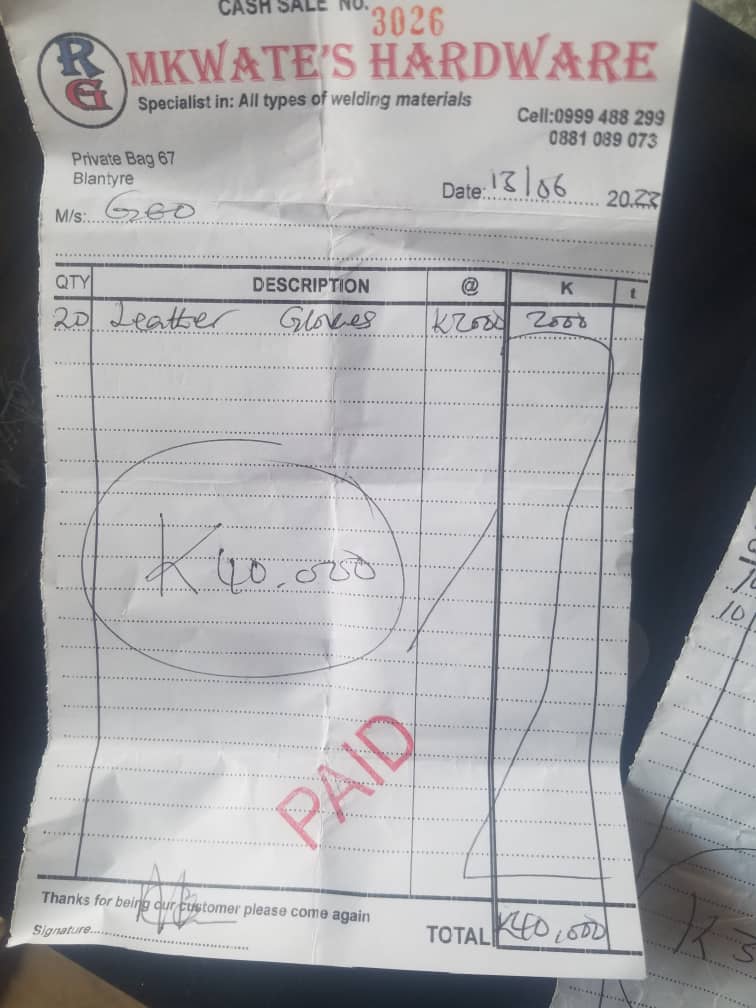 CASH SALE No. 3026
RG
MKWATE'S HARDWARE
Specialist in: All types of welding materials
Cell:0999 488 299
0881 089 073
Private Bag 67
Blantyre
Date: 13/06 2023
M/s: GEO
QTY DESCRIPTION @ K t
20 Leather Gloves K2000 2000
K40,000
PAID
Thanks for being our customer please come again
Signature
TOTAL K40,000
10
K